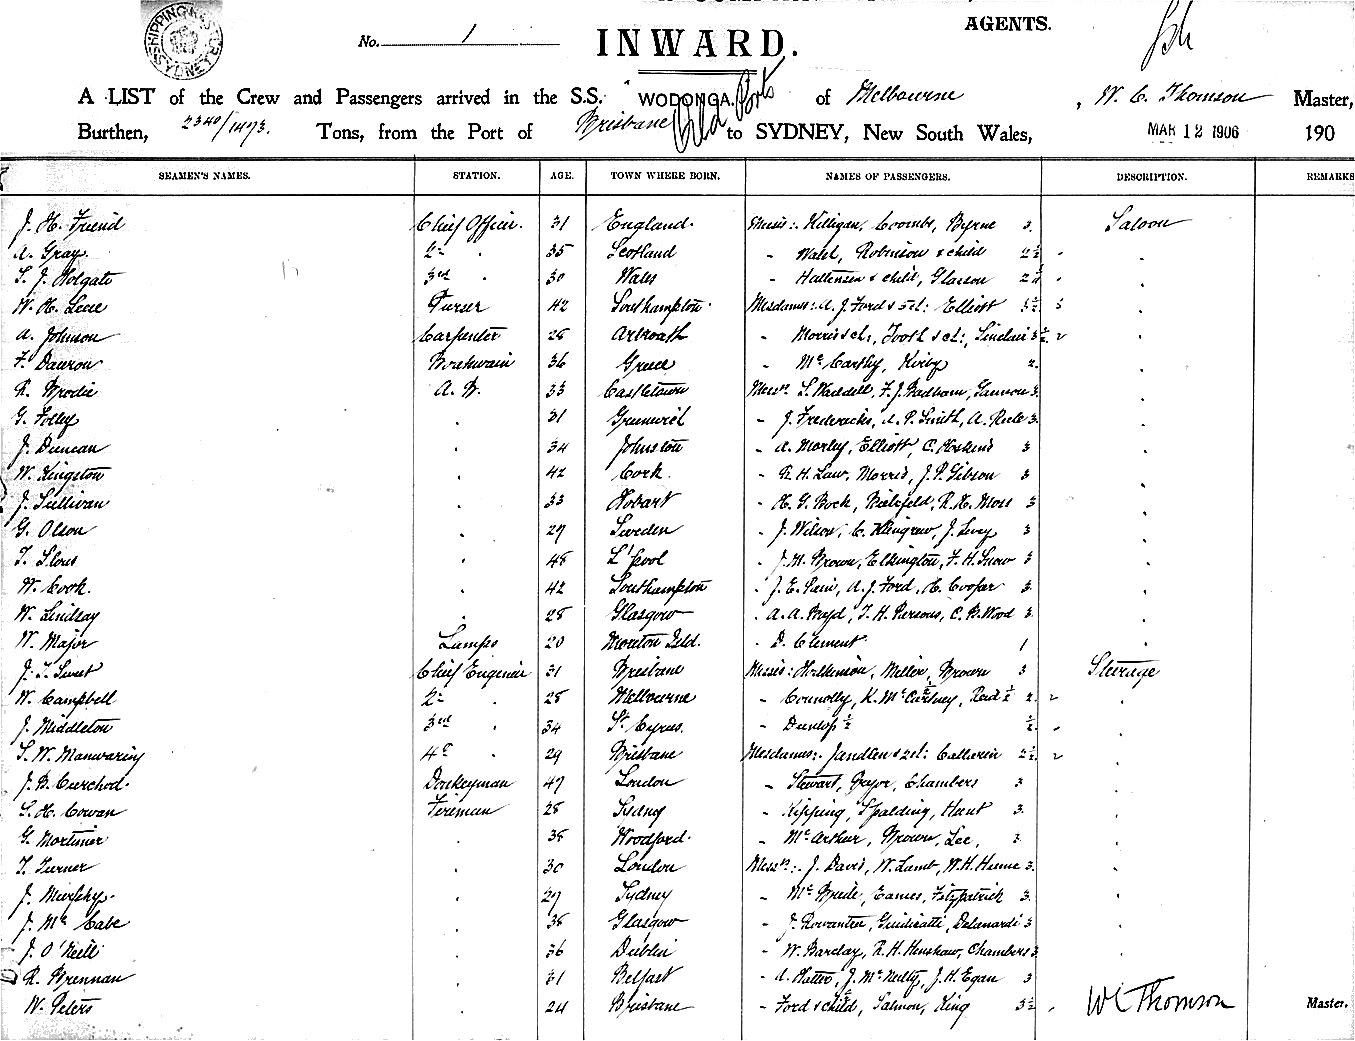 AGENTS.
SHIPPING MASTER SYDNEY
No. 1
INWARD.
A LIST of the Crew and Passengers arrived in the S.S. "WODONGA. Qld Ports of Melbourne, W. C. Thomson Master,
Burthen, 2340/1493. Tons, from the Port of Brisbane to SYDNEY, New South Wales, MAR 12 1906 190
SEAMEN'S NAMES. STATION. AGE. TOWN WHERE BORN. NAMES OF PASSENGERS. DESCRIPTION. REMARKS
J. H. Friend Chief Officer. 31 England. Misses: Killigan, Coombs, Byrne 3. Saloon
A. Gray 2nd " 35 Scotland " Walsh, Robinson & child 2½
S. J. Holgate 3rd " 30 Wales " & child, Glasson 2½
W. H. Leese Purser 42 Southampton. Mesdames: A. J. Ford & 5 ch: Elliott
A. Johnson Carpenter 28 Arbroath " Morris & ch, Tooth & ch:, Sinclair 3½
F. Dawson Boatswain 36 Greece " McCarthy, Kirby 2.
R. Brodie A. B. 33 Castletown Messrs S. Waddell, F. J. Badham, Gannon 3.
G. Folley " 31 Greenwich " J. Fredericks, A. P. Smith, A. Riele 3.
J. Duncan " 34 Johnston " A. Morley, Elliott, C. Hoskins 3
W. Kingston " 42 Cork " R. H. Law, Morris, J. P. Gibson 3
J. Sullivan " 33 Hobart " H. G. Bock, Bielefeld, R. H. Moss 3
G. Olson " 29 Sweden " J. Wilson, C. Klingrew, J. Levy 3
T. " 48 L'pool " J. M. Brown, Elkington, F. H. Snow 3
W. Cook. " 42 Southampton " J. E. Pain, A. J. Ford, H. Cooper 3
W. Lindsay " 28 Glasgow " A. A. Boyd, T. H. Parsons, C. R. Wood 3
W. Major Lamps 20 Moreton Isld. " D. Clement 1
J. T. Sweet Chief Engineer 31 Brisbane Misses: Wilkinson, Miller, Brown 3 Steerage
W. Campbell 2nd " 28 Melbourne " Connolly, K. McCartney, Reid ½ 2.
J. Middleton 3rd " 34 St. Cyrus. " Dunlop ½ ½
S. W. Manwaring 4th " 29 Brisbane Mesdames: & 2 ch: Catharin 2½
J. B. Curchod. Donkeyman 47 London " Stewart, Pryor, Chambers 3
S. H. Cowan Fireman 28 Sydney " Kipping, Spalding, Hunt 3.
G. Mortimer " 38 Woodford. " McArthur, Brown, Lee, 3.
T. Turner " 30 London Messrs: J. David, W. Lamb, W. H. 3.
J. Murphy. " 29 Sydney " McBride, Eames, Fitzpatrick 3.
J. McCabe " 38 Glasgow " J. Rowantree, Giudicatti, Delanardi 3
J. O'Neill " 36 Dublin " W. Barclay, R. H. Henshaw, Chambers 3.
R. Brennan " 31 Belfast " A. Platter, J. McNeilly, J. H. Egan 3
W. Peters " 24 Brisbane " Ford & child, Salmon, King 3½ W C Thomson Master.